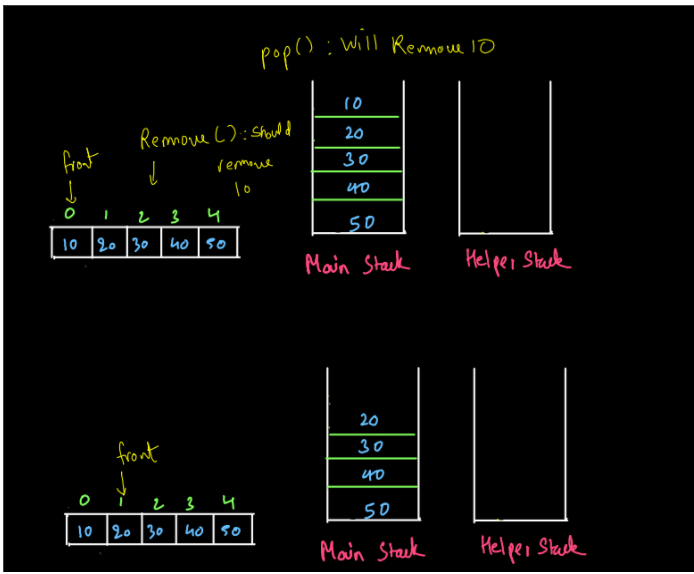 pop() : Will Remove 10
Remove() : should
remove
10
front
0 1 2 3 4
10 20 30 40 50
10
20
30
40
50
Main Stack
Helper Stack
front
0 1 2 3 4
10 20 30 40 50
20
30
40
50
Main Stack
Helper Stack